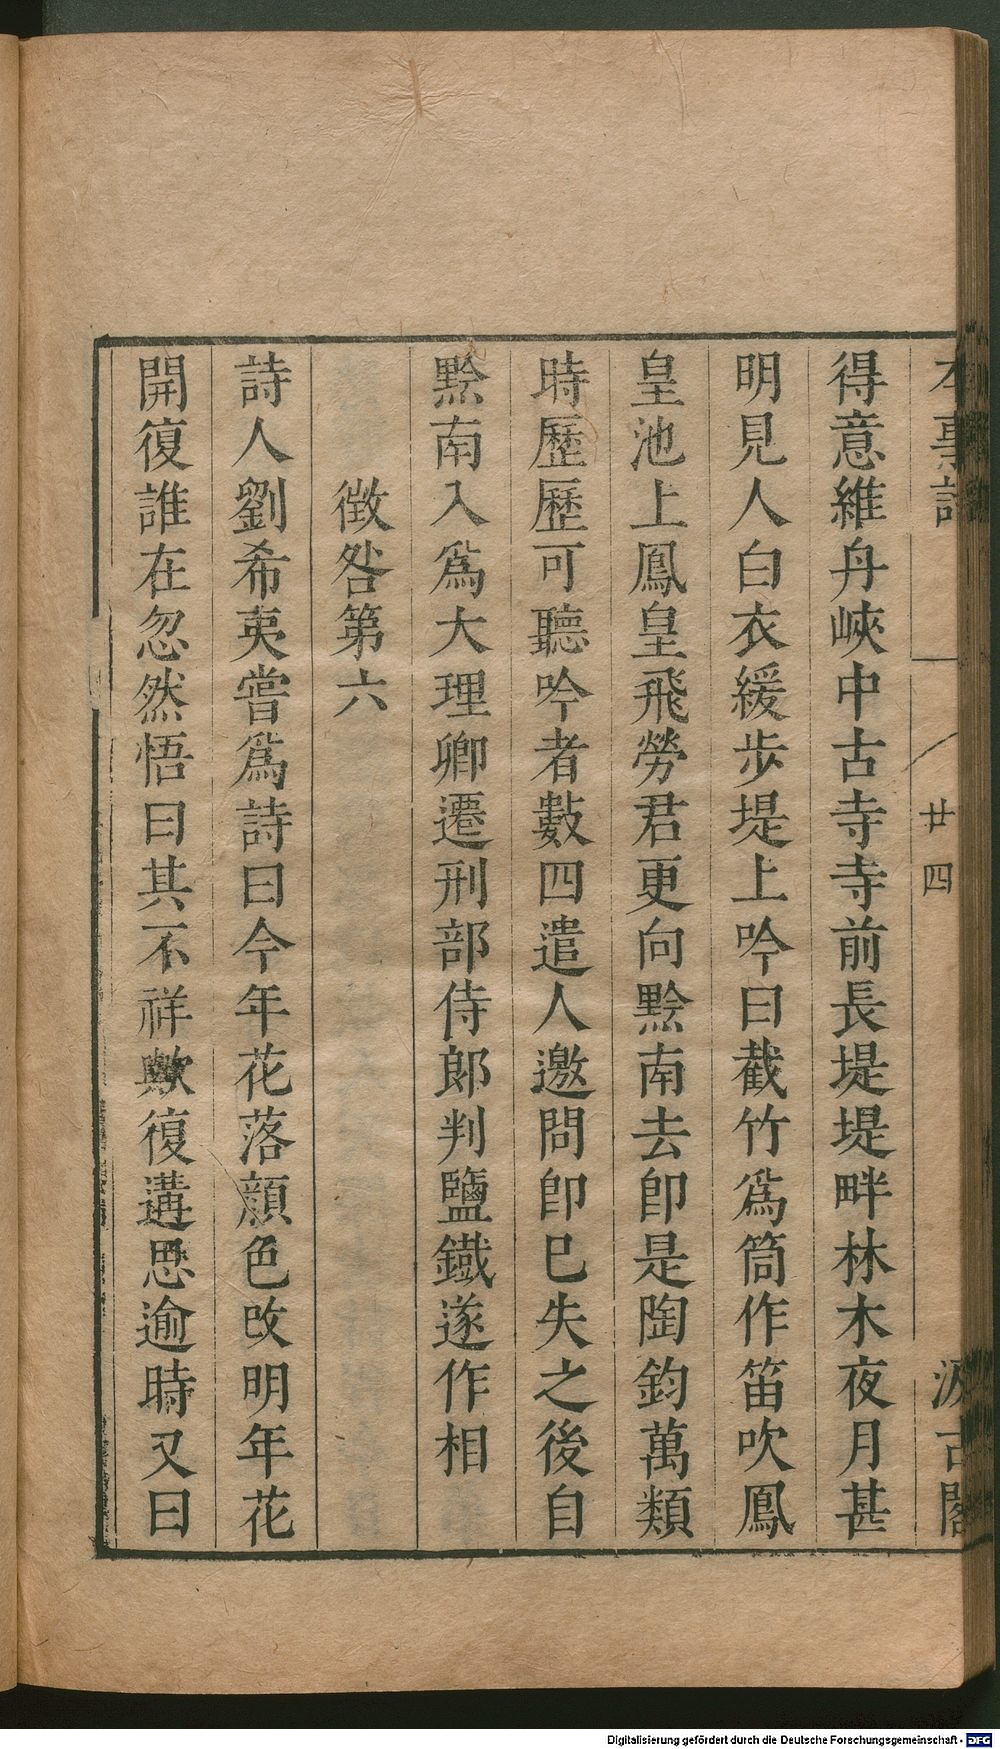 本事詩
廿四
汲古閣
得意維舟峽中古寺寺前長堤堤畔林木夜月甚
明見人白衣緩步堤上吟曰截竹爲筒作笛吹鳳
皇池上鳳皇飛勞君更向黔南去卽是陶鈞萬類
時歷歷可聽吟者數四遣人邀問卽已失之後自
黔南入爲大理卿遷刑部侍郎判鹽鐵遂作相
徵咎第六
詩人劉希夷嘗爲詩曰今年花落顏色改明年花
開復誰在忽然悟曰其不祥歟復遘思逾時又曰
Digitalisierung gefördert durch die Deutsche Forschungsgemeinschaft - DFG